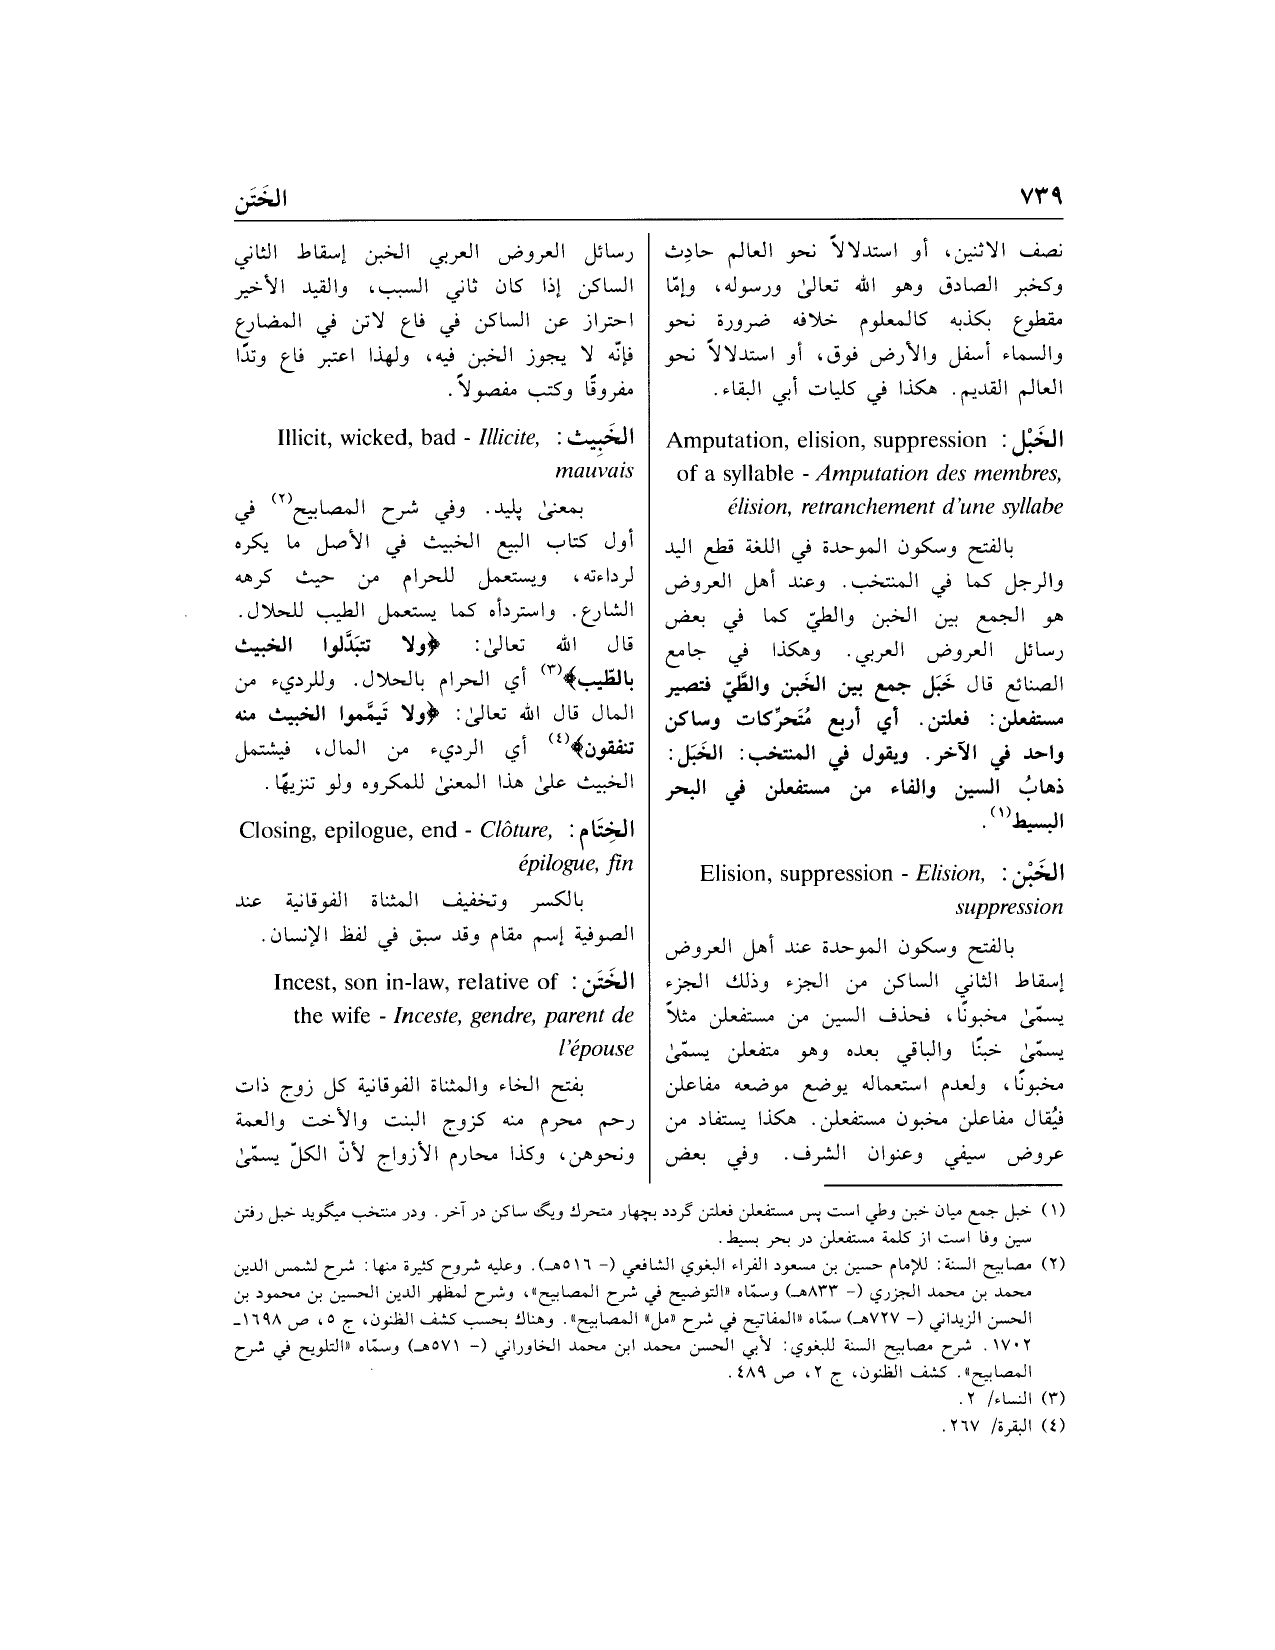 ٧٣٩
الخَتَن
نصف الاثنين، أو استدلالاً نحو العالم حادِث
وكخبر الصادق وهو الله تعالىٰ ورسوله، وإمّا
مقطوع بكذبه كالمعلوم خلافه ضرورة نحو
والسماء أسفل والأرض فوق، أو استدلالاً نحو
العالم القديم. هكذا في كليات أبي البقاء.
الخَبْل: Amputation, elision, suppression
of a syllable - Amputation des membres,
élision, retranchement d'une syllabe
بالفتح وسكون الموحدة في اللغة قطع اليد
والرجل كما في المنتخب. وعند أهل العروض
هو الجمع بين الخبن والطيّ كما في بعض
رسائل العروض العربي. وهكذا في جامع
الصنائع قال خَبَل جمع بين الخَبن والطَّيّ فتصير
مستفعلن: فعلتن. أي أربع مُتَحرِّكات وساكن
واحد في الآخر. ويقول في المنتخب: الخَبَل:
ذهابُ السين والفاء من مستفعلن في البحر
البسيط(١).
الخَبْن: Elision, suppression - Elision,
suppression
بالفتح وسكون الموحدة عند أهل العروض
إسقاط الثاني الساكن من الجزء وذلك الجزء
يسمّىٰ مخبونًا، فحذف السين من مستفعلن مثلاً
يسمّىٰ خبنًا والباقي بعده وهو متفعلن يسمّىٰ
مخبونًا، ولعدم استعماله يوضع موضعه مفاعلن
فيُقال مفاعلن مخبون مستفعلن. هكذا يستفاد من
عروض سيفي وعنوان الشرف. وفي بعض
رسائل العروض العربي الخبن إسقاط الثاني
الساكن إذا كان ثاني السبب، والقيد الأخير
احتراز عن الساكن في فاع لاتن في المضارع
فإنّه لا يجوز الخبن فيه، ولهذا اعتبر فاع وتدًا
مفروقًا وكتب مفصولاً.
الخَبِيث: Illicit, wicked, bad - Illicite,
mauvais
بمعنىٰ پليد. وفي شرح المصابيح(٢) في
أول كتاب البيع الخبيث في الأصل ما يكره
لرداءته، ويستعمل للحرام من حيث كرهه
الشارع. واستردأه كما يستعمل الطيب للحلال.
قال الله تعالىٰ: ﴿ولا تتبَدَّلوا الخبيث
بالطّيب﴾(٣) أي الحرام بالحلال. وللرديء من
المال قال الله تعالىٰ: ﴿ولا تَيمَّموا الخبيث منه
تنفقون﴾(٤) أي الرديء من المال، فيشتمل
الخبيث علىٰ هذا المعنىٰ للمكروه ولو تنزيهًا.
الخِتَام: Closing, epilogue, end - Clôture,
épilogue, fin
بالكسر وتخفيف المثناة الفوقانية عند
الصوفية إسم مقام وقد سبق في لفظ الإنسان.
الخَتَن: Incest, son in-law, relative of
the wife - Inceste, gendre, parent de
l'épouse
بفتح الخاء والمثناة الفوقانية كل زوج ذات
رحم محرم منه كزوج البنت والأخت والعمة
ونحوهن، وكذا محارم الأزواج لأنّ الكلّ يسمّىٰ
(١) خبل جمع ميان خبن وطي است پس مستفعلن فعلتن گردد بچهار متحرك ويگ ساكن در آخر. ودر منتخب ميگويد خبل رفتن
سين وفا است از كلمة مستفعلن در بحر بسيط.
(٢) مصابيح السنة: للإمام حسين بن مسعود الفراء البغوي الشافعي (- ٥١٦هـ). وعليه شروح كثيرة منها: شرح لشمس الدين
محمد بن محمد الجزري (- ٨٣٣هـ) وسمّاه «التوضيح في شرح المصابيح»، وشرح لمظهر الدين الحسين بن محمود بن
الحسن الزيداني (- ٧٢٧هـ) سمّاه «المفاتيح في شرح «مل» المصابيح». وهناك بحسب كشف الظنون، ج ٥، ص ١٦٩٨ـ
١٧٠٢. شرح مصابيح السنة للبغوي: لأبي الحسن محمد ابن محمد الخاوراني (- ٥٧١هـ) وسمّاه «التلويح في شرح
المصابيح». كشف الظنون، ج ٢، ص ٤٨٩.
(٣) النساء/ ٢.
(٤) البقرة/ ٢٦٧.